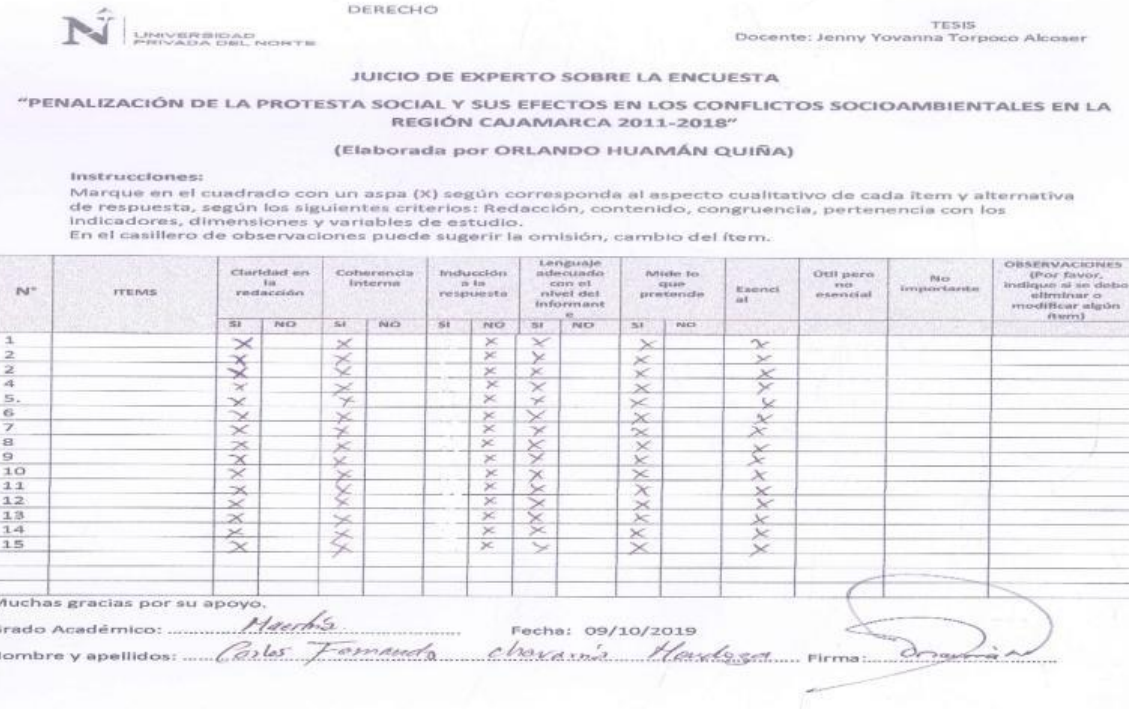 DERECHO
UNIVERSIDAD
PRIVADA DEL NORTE
TESIS
Docente: Jenny Yovanna Torpoco Alcoser
JUICIO DE EXPERTO SOBRE LA ENCUESTA
"PENALIZACIÓN DE LA PROTESTA SOCIAL Y SUS EFECTOS EN LOS CONFLICTOS SOCIOAMBIENTALES EN LA
REGIÓN CAJAMARCA 2011-2018"
(Elaborada por ORLANDO HUAMÁN QUIÑA)
Instrucciones:
Marque en el cuadrado con un aspa (X) según corresponda al aspecto cualitativo de cada ítem y alternativa
de respuesta, según los siguientes criterios: Redacción, contenido, congruencia, pertenencia con los
indicadores, dimensiones y variables de estudio.
En el casillero de observaciones puede sugerir la omisión, cambio del ítem.
N° ITEMS
Claridad en
la
redacción
Coherencia
interna
Inducción
a la
respuesta
Lenguaje
adecuado
con el
nivel del
informant
e
Mide lo
que
pretende
Esenci
al
Útil pero
no
esencial
No
importante
OBSERVACIONES
(Por favor,
indique si se debe
eliminar o
modificar algún
ítem)
SI NO SI NO SI NO SI NO SI NO
1 X X X X X X
2 X X X X X X
2 X X X X X X
4 X X X X X X
5. X X X X X X
6 X X X X X X
7 X X X X X X
8 X X X X X X
9 X X X X X X
10 X X X X X X
11 X X X X X X
12 X X X X X X
13 X X X X X X
14 X X X X X X
15 X X X X X X
Muchas gracias por su apoyo.
Grado Académico: Maestría Fecha: 09/10/2019
Nombre y apellidos: Carlos Fernando Mendoza Firma: